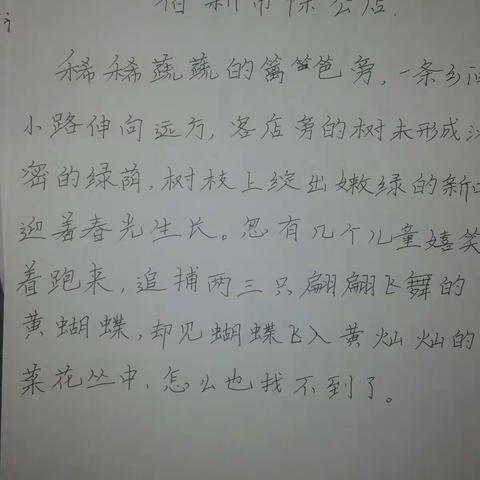 宿新市徐公店.
稀稀蔬蔬的篱笆旁,一条
小路伸向远方,客店旁的树未形成
密的绿荫,树枝上绽出嫩绿的新
迎着春光生长。忽有几个儿童嬉笑
着跑来,追捕两三只翩翩飞舞的
黄蝴蝶,却见蝴蝶飞入黄灿灿的
菜花丛中,怎么也找不到了。